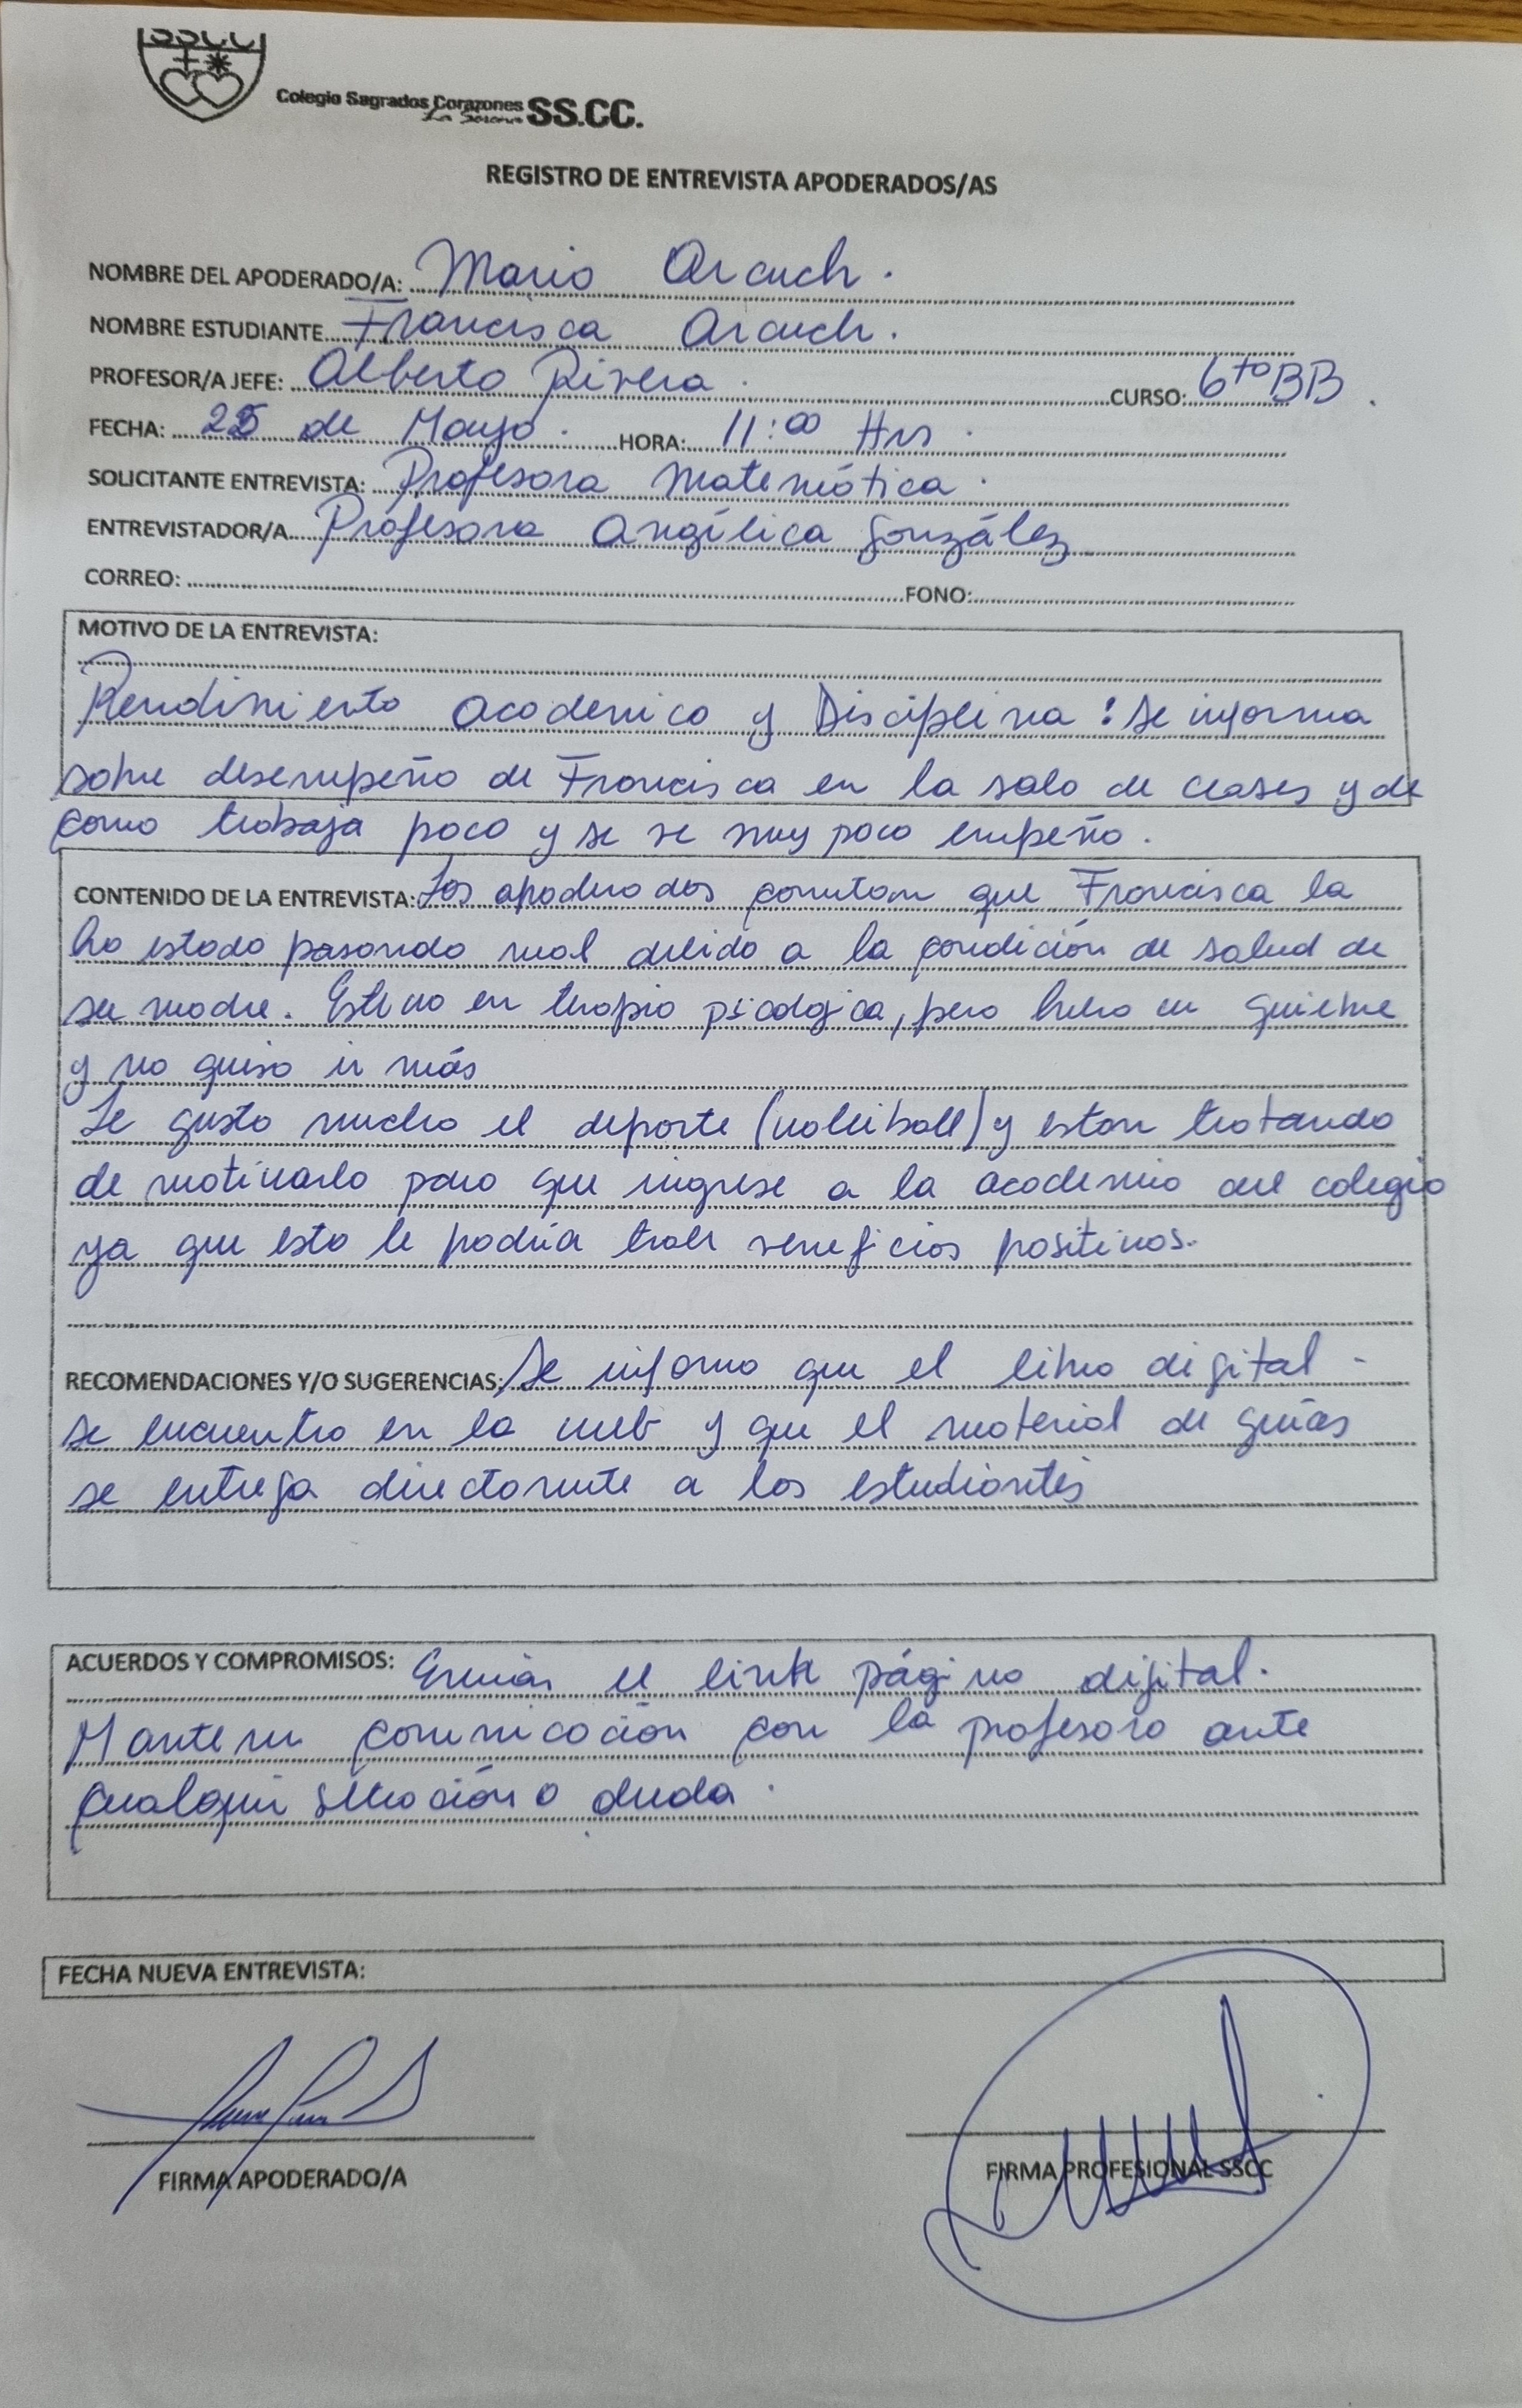 SSCC
Colegio Sagrados Corazones SS.CC.
La Serena
REGISTRO DE ENTREVISTA APODERADOS/AS
NOMBRE DEL APODERADO/A: Mario Arcuch.
NOMBRE ESTUDIANTE Francisca Arcuch.
PROFESOR/A JEFE: Alberto Rivera. CURSO: 6to BB.
FECHA: 25 de Mayo. HORA: 11:00 Hrs.
SOLICITANTE ENTREVISTA: Profesora Matemática.
ENTREVISTADOR/A Profesora Angélica González
CORREO: FONO:
MOTIVO DE LA ENTREVISTA:
Rendimiento academico y Disciplina: Se informa
sobre desempeño de Francisca en la sala de clases y de
como trabaja poco y se ve muy poco empeño.
CONTENIDO DE LA ENTREVISTA: Los apoderados comentan que Francisca la
ha estado pasando mal debido a la condición de salud de
su madre. Estuvo en terapia psicologica, pero hubo un quiebre
y no quiso ir más
Le gusta mucho el deporte (voleiball) y estan tratando
de motivarla para que ingrese a la academia del colegio
ya que esto le podría traer beneficios positivos.
RECOMENDACIONES Y/O SUGERENCIAS: Se informa que el libro digital
se encuentra en la web y que el material de guías
se entrega directamente a los estudiantes
ACUERDOS Y COMPROMISOS: Enviar el link página digital.
Mantener comunicación con la profesora ante
cualquier situación o duda.
FECHA NUEVA ENTREVISTA:
FIRMA APODERADO/A FIRMA PROFESIONAL SSCC